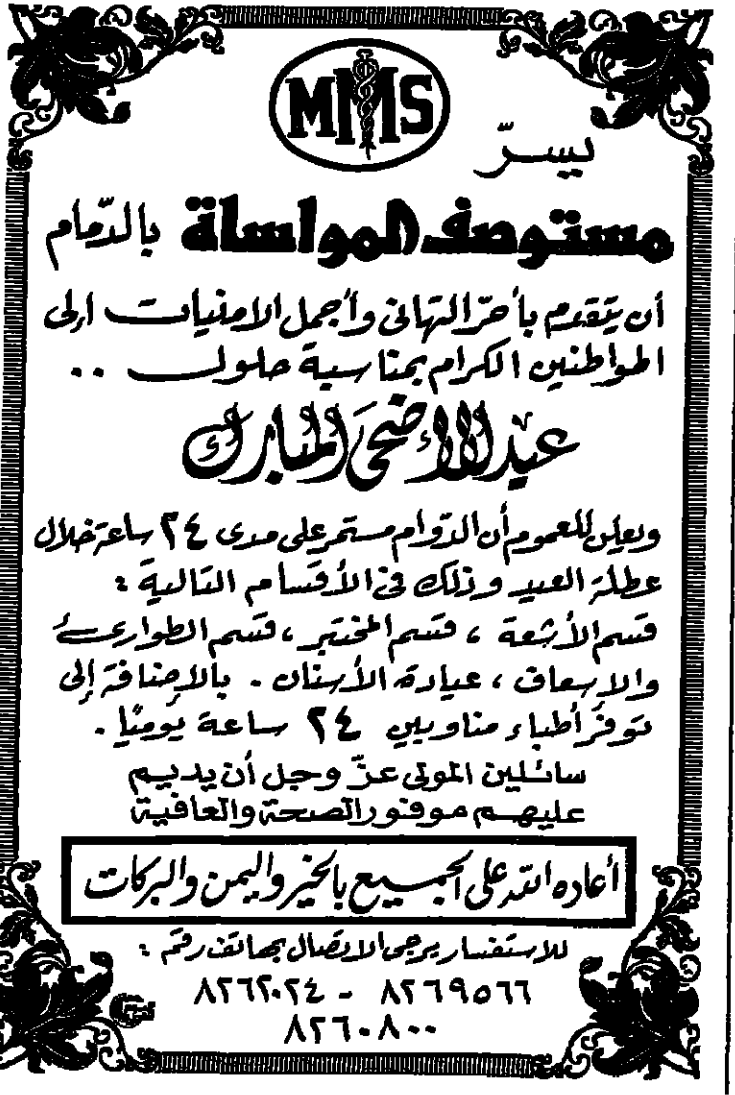 MMS
يسرّ
مستوصف المواساة بالدّمام
أن يتقدم بأحرّ التهاني وأجمل الامنيات إلى
المواطنين الكرام بمناسبة حلول ..
عيد الأضحى المبارك
ويعلن للعموم أن الدّوام مستمر على مدى ٢٤ ساعة خلال
عطلة العيد وذلك في الأقسام التالية :
قسم الأشعة ، قسم المختبر ، قسم الطوارئ
والاسعاف ، عيادة الأسنان . بالاضافة إلى
توفر أطباء مناوبين ٢٤ ساعة يوميًا .
سائلين المولى عزّ وجل أن يديم
عليهم موفور الصحة والعافية
أعاده الله على الجميع بالخير واليمن والبركات
للاستفسار يرجى الاتصال بهاتف رقم :
٨٢٦٩٥٦٦ - ٨٢٦٢٠٢٤
٨٢٦٠٨٠٠